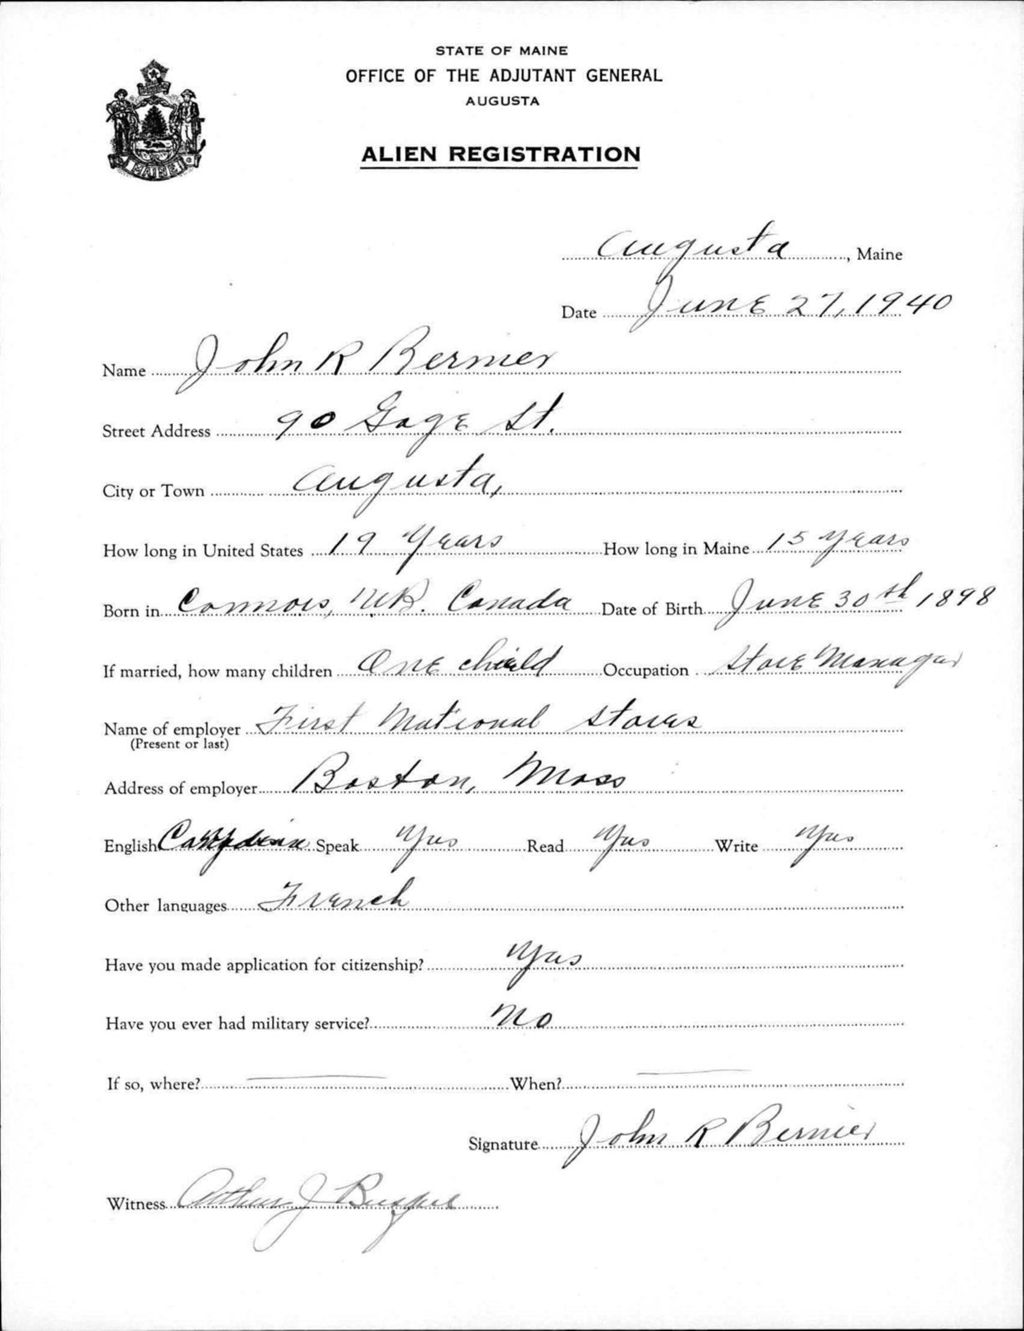 STATE OF MAINE
OFFICE OF THE ADJUTANT GENERAL
AUGUSTA
ALIEN REGISTRATION
MAINE
Augusta, Maine
Date June 27, 1940
Name John R Bernier
Street Address 90 Gage St.
City or Town Augusta,
How long in United States 19 Years How long in Maine 15 Years
Born in Connors, N.B. Canada Date of Birth June 30th 1898
If married, how many children One child Occupation Store Manager
Name of employer First National Stores
(Present or last)
Address of employer Boston, Mass
English Speak Yes Read Yes Write Yes
Other languages French
Have you made application for citizenship? Yes
Have you ever had military service? No
If so, where? When?
Signature John R Bernier
Witness Arthur J